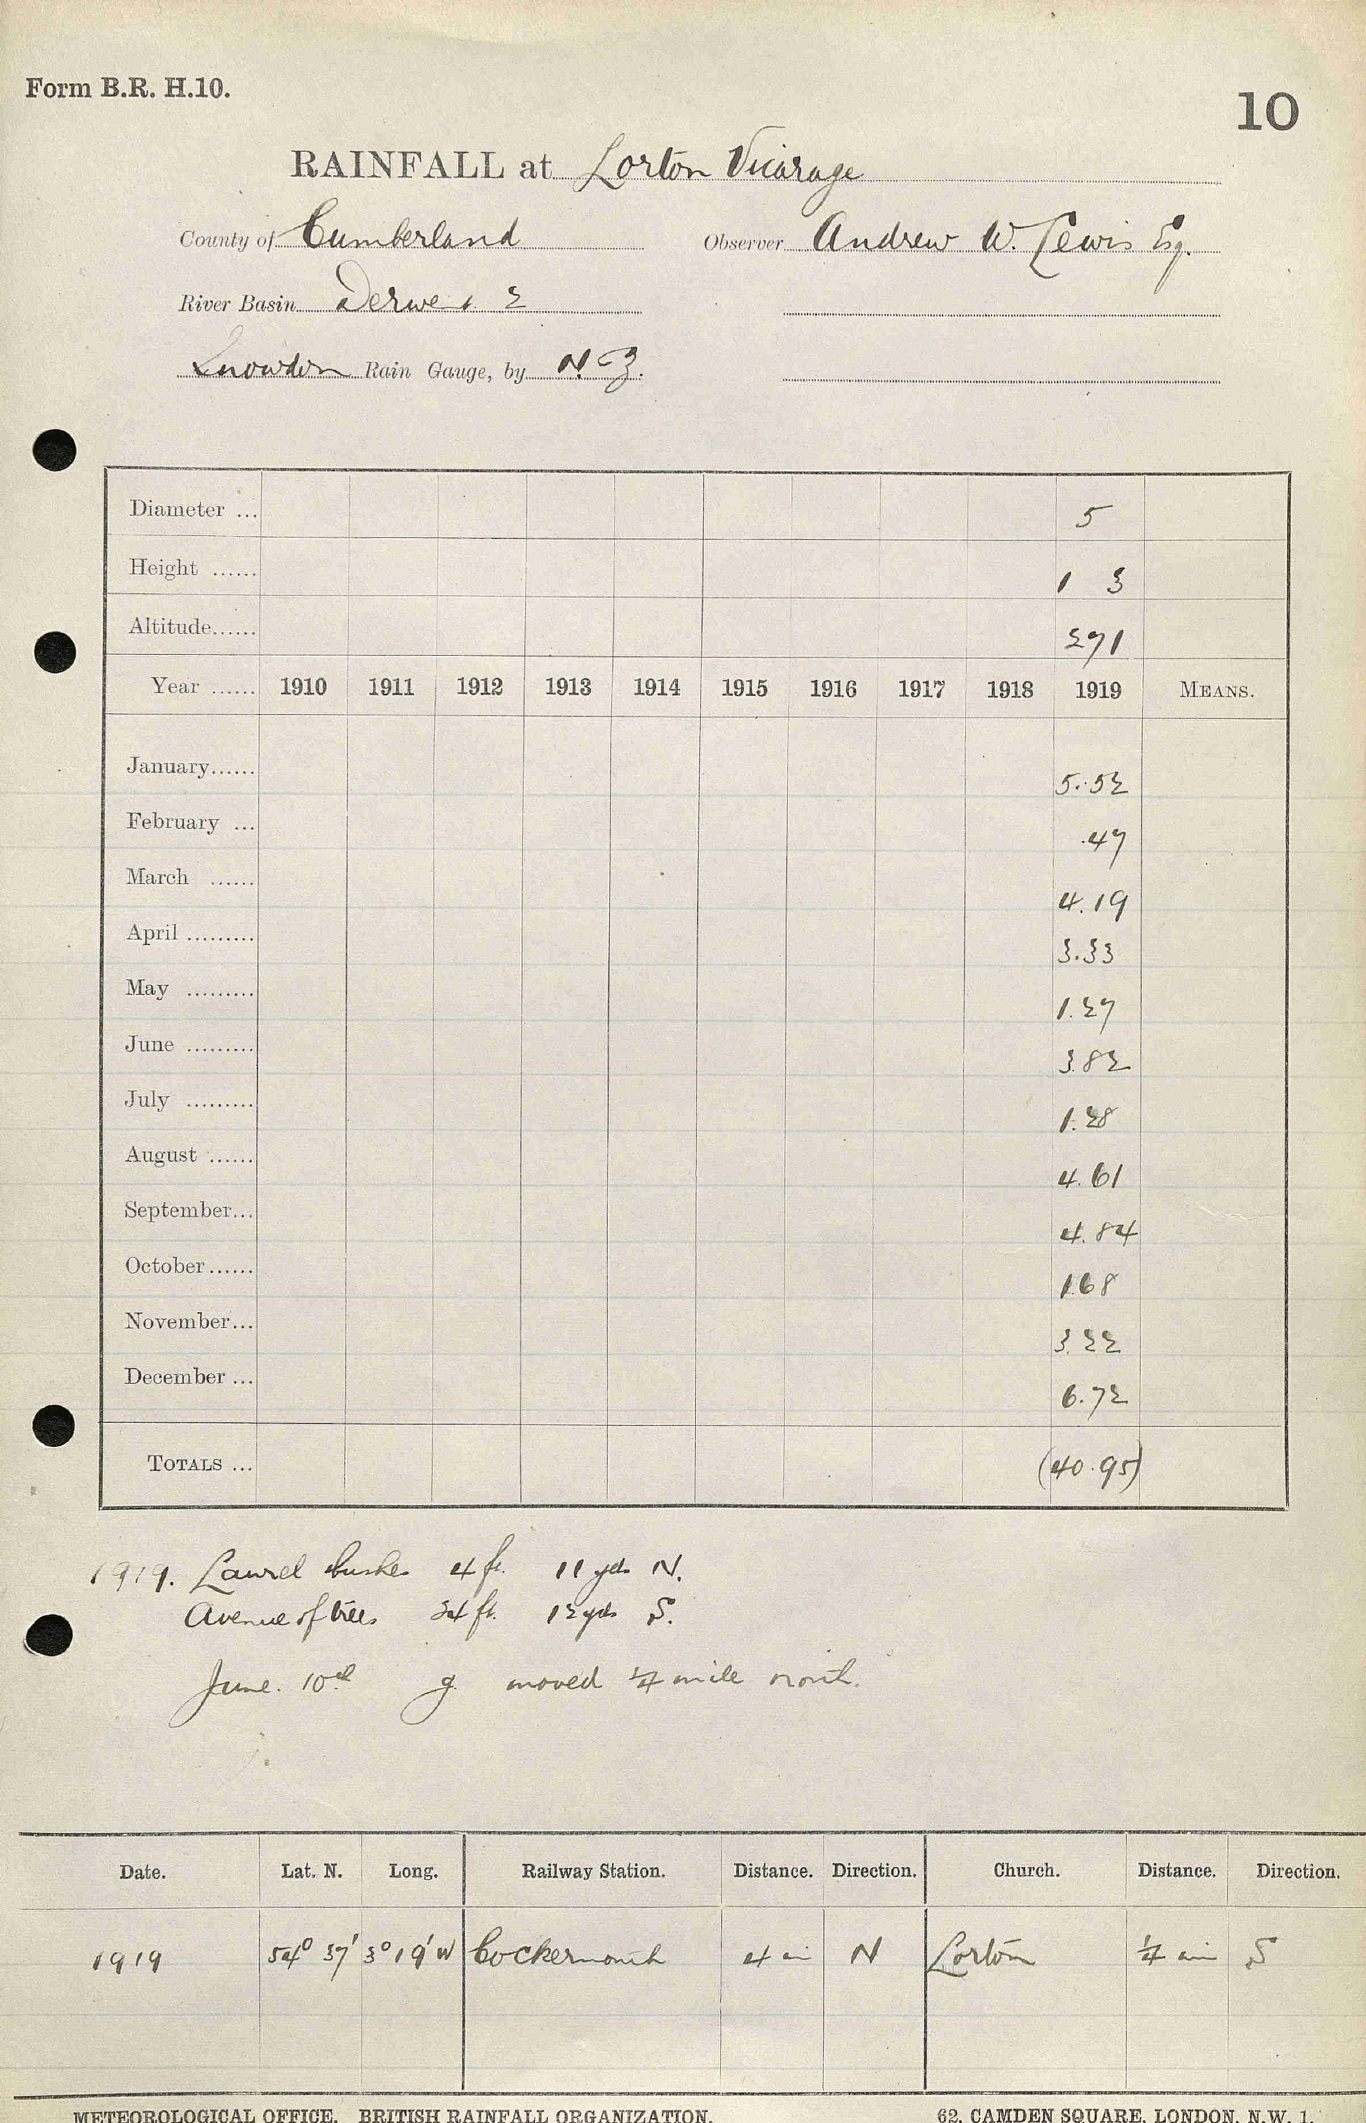 Form B.R. H.10.
10
RAINFALL at Lorton Vicarage
County of Cumberland Observer Andrew W. Lewis Esq.
River Basin Derwent 2
Snowdon Rain Gauge, by N & Z.
Diameter ... 5
Height ...... 1 3
Altitude...... 271
Year ...... 1910 1911 1912 1913 1914 1915 1916 1917 1918 1919 MEANS.
January...... 5.52
February ... .47
March ...... 4.19
April ......... 3.33
May ......... 1.27
June ......... 3.82
July ......... 1.28
August ...... 4.61
September... 4.84
October...... 1.68
November... 3.22
December ... 6.72
TOTALS ... (40.95)
1919. Laurel bushes 4 ft. 11 yds N.
Avenue of trees 24 ft. 12 yds S.
June. 10th g. moved ¼ mile north.
Date. Lat. N. Long. Railway Station. Distance. Direction. Church. Distance. Direction.
1919 54° 37' 3° 19' W Cockermouth 4 mi N Lorton ¼ mi S
METEOROLOGICAL OFFICE. BRITISH RAINFALL ORGANIZATION. 62, CAMDEN SQUARE, LONDON, N.W. 1.